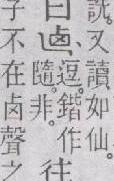 又讀如仙。
曰𠧟、逗。鍇作隨。非。往
子不在卤聲之